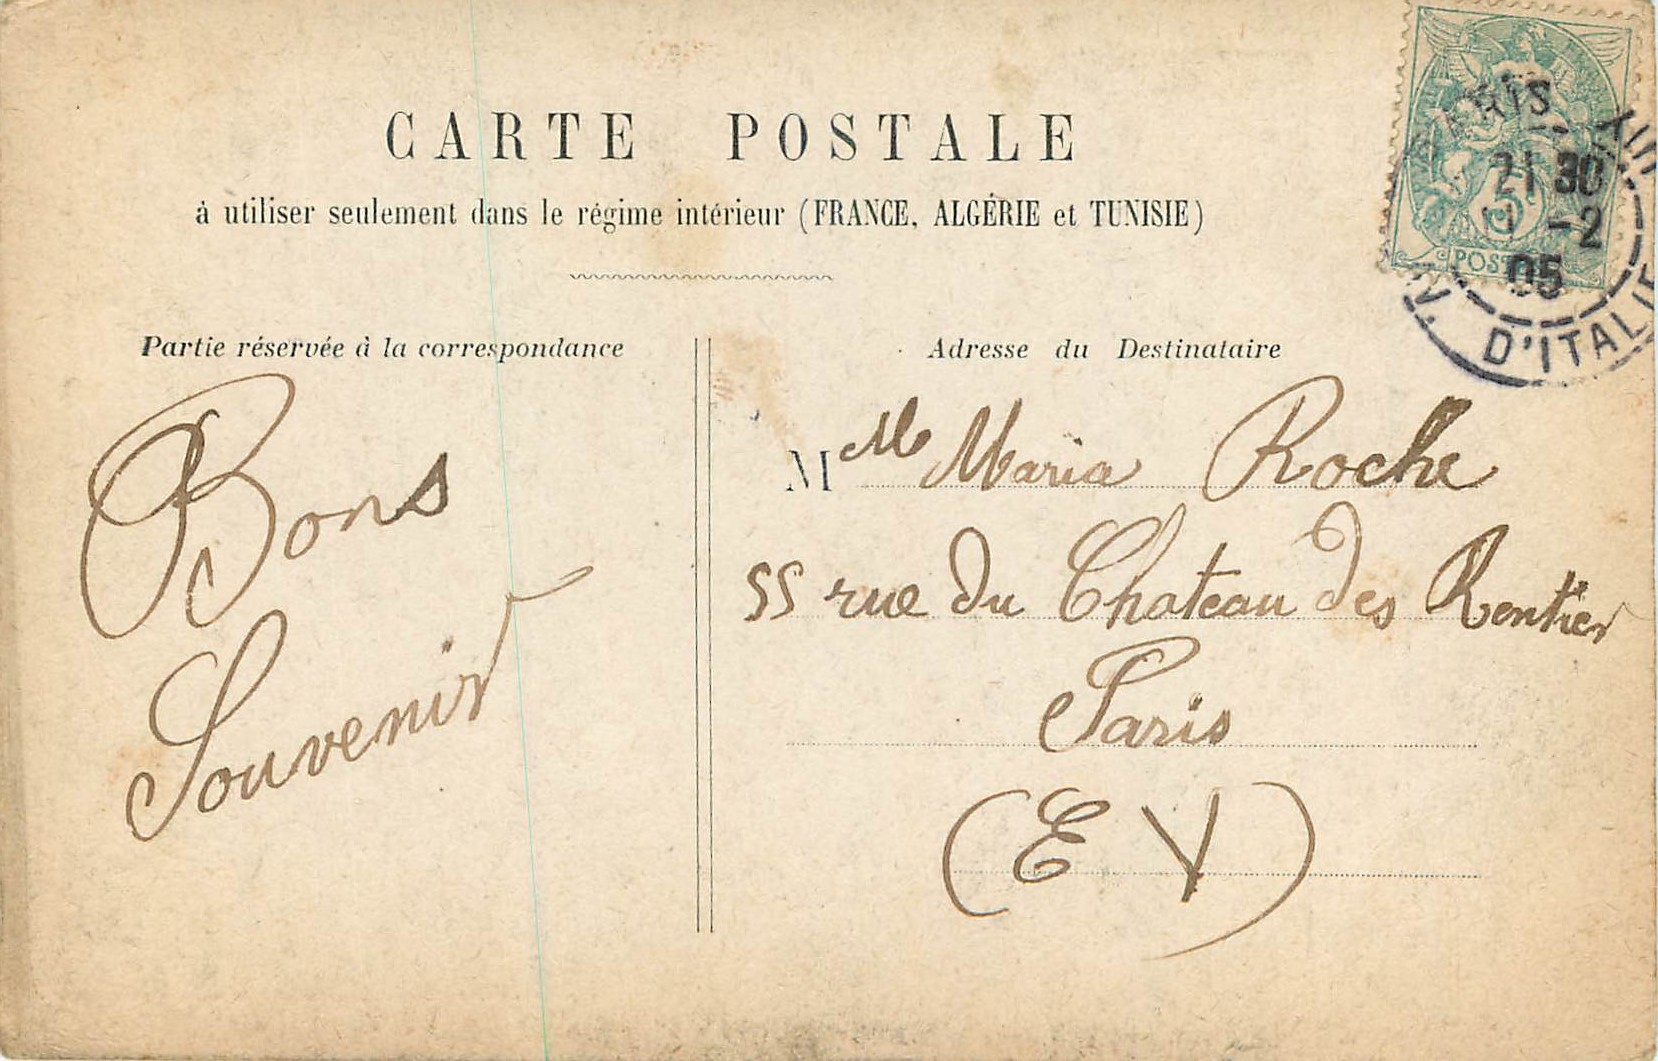 CARTE POSTALE
à utiliser seulement dans le régime intérieur (FRANCE, ALGÉRIE et TUNISIE)
Partie réservée à la correspondance
Bons
Souvenir
Adresse du Destinataire
Melle Maria Roche
55 rue du Chateau des Rentier
Paris
(E V)
PARIS. XIII
21 30
11 -2
05
AV. D'ITALIE
5c
POSTES